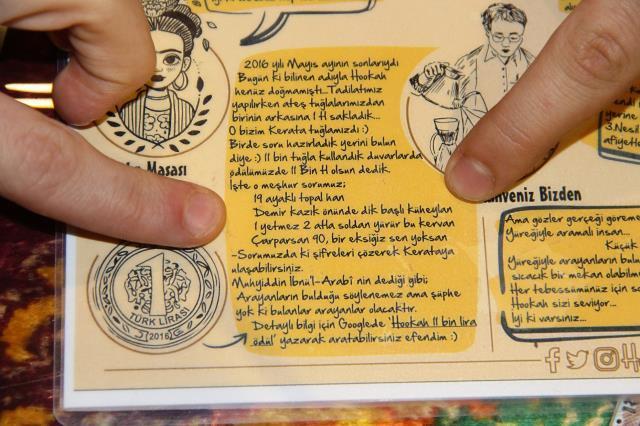 2016 yılı Mayıs ayının sonlarıydı
Bugün ki bilinen adıyla Hookah
henüz doğmamıştı...Tadilatımız
yapılırken ateş tuğlalarımızdan
birinin arkasına 1 H sakladık...
O bizim Kerata tuğlamızdı :)
Birde soru hazırladık yerini bulun
diye :) 11 bin tuğla kullandık duvarlarda
ödülümüzde 11 Bin H olsun dedik.
İşte o meşhur sorumuz;
19 ayaklı topal han
Demir kazık önünde dik başlı küheylan
1 yetmez 2 atla soldan yürür bu kervan
Çarparsan 90, bir eksiğiz sen yoksan
-Sorumuzda ki şifreleri çözerek Kerataya
ulaşabilirsiniz.
Muhyiddin İbnü'l-Arabî nin dediği gibi;
Arayanların bulduğu söylenemez ama şüphe
yok ki bulanlar arayanlar olacaktır.
Detaylı bilgi için Googlede 'Hookah 11 bin lira
ödül' yazarak aratabilirsiniz efendim :)
Masası
1
TÜRK LİRASI
2016
yerine
3.Nesil
afiyetle
Bizden
Ama gözler gerçeği göreme
Yüreğiyle aramalı insan...
Küçük
Yüreğiyle arayanların bulu
sıcacık bir mekan olabilme
Her tebessümünüz için so
Hookah sizi seviyor...
İyi ki varsınız...